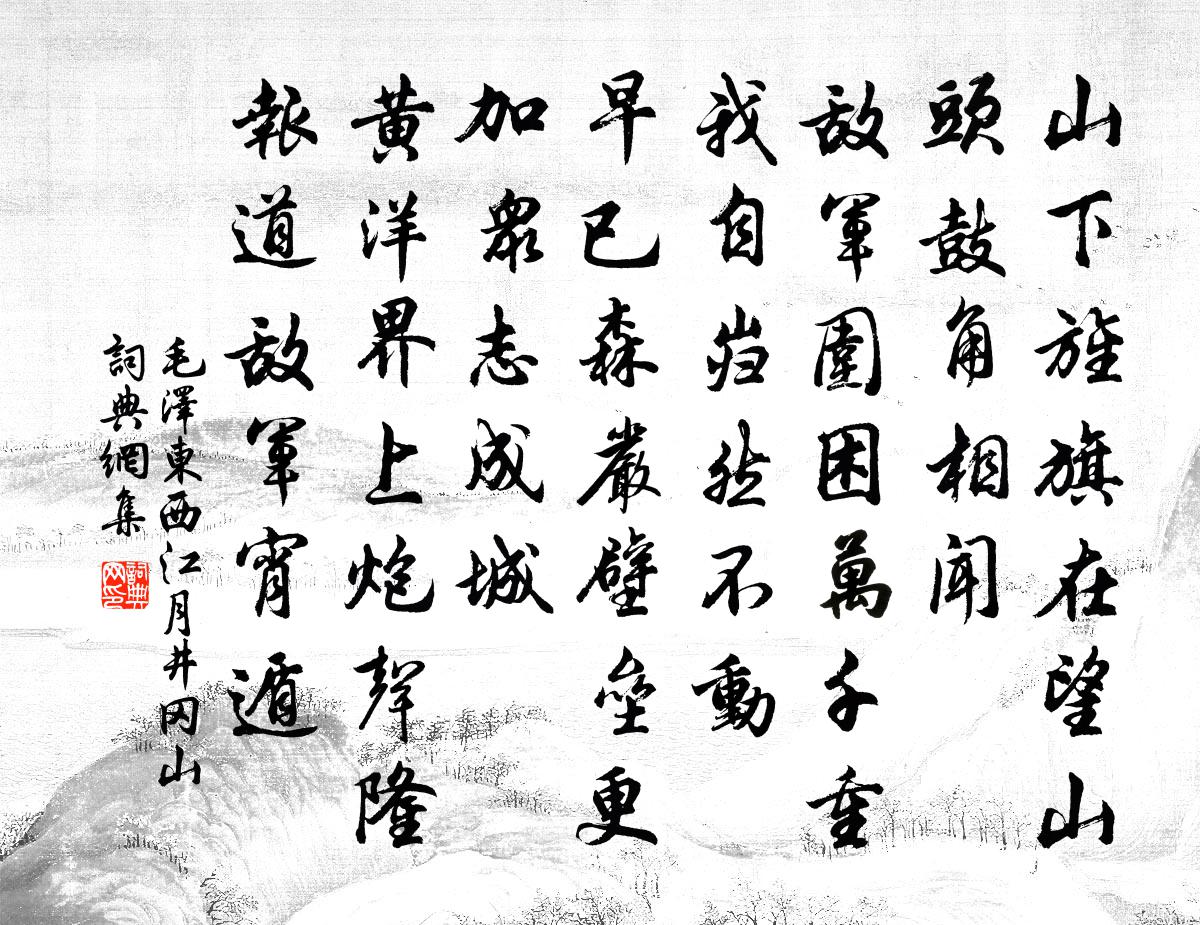 山下旌旗在望山
頭鼓角相聞
敵軍圍困萬千重
我自岿然不動
早已森嚴壁壘更
加眾志成城
黃洋界上炮聲隆
報道敵軍宵遁
毛澤東西江月井岡山
詞典網集
詞典网印